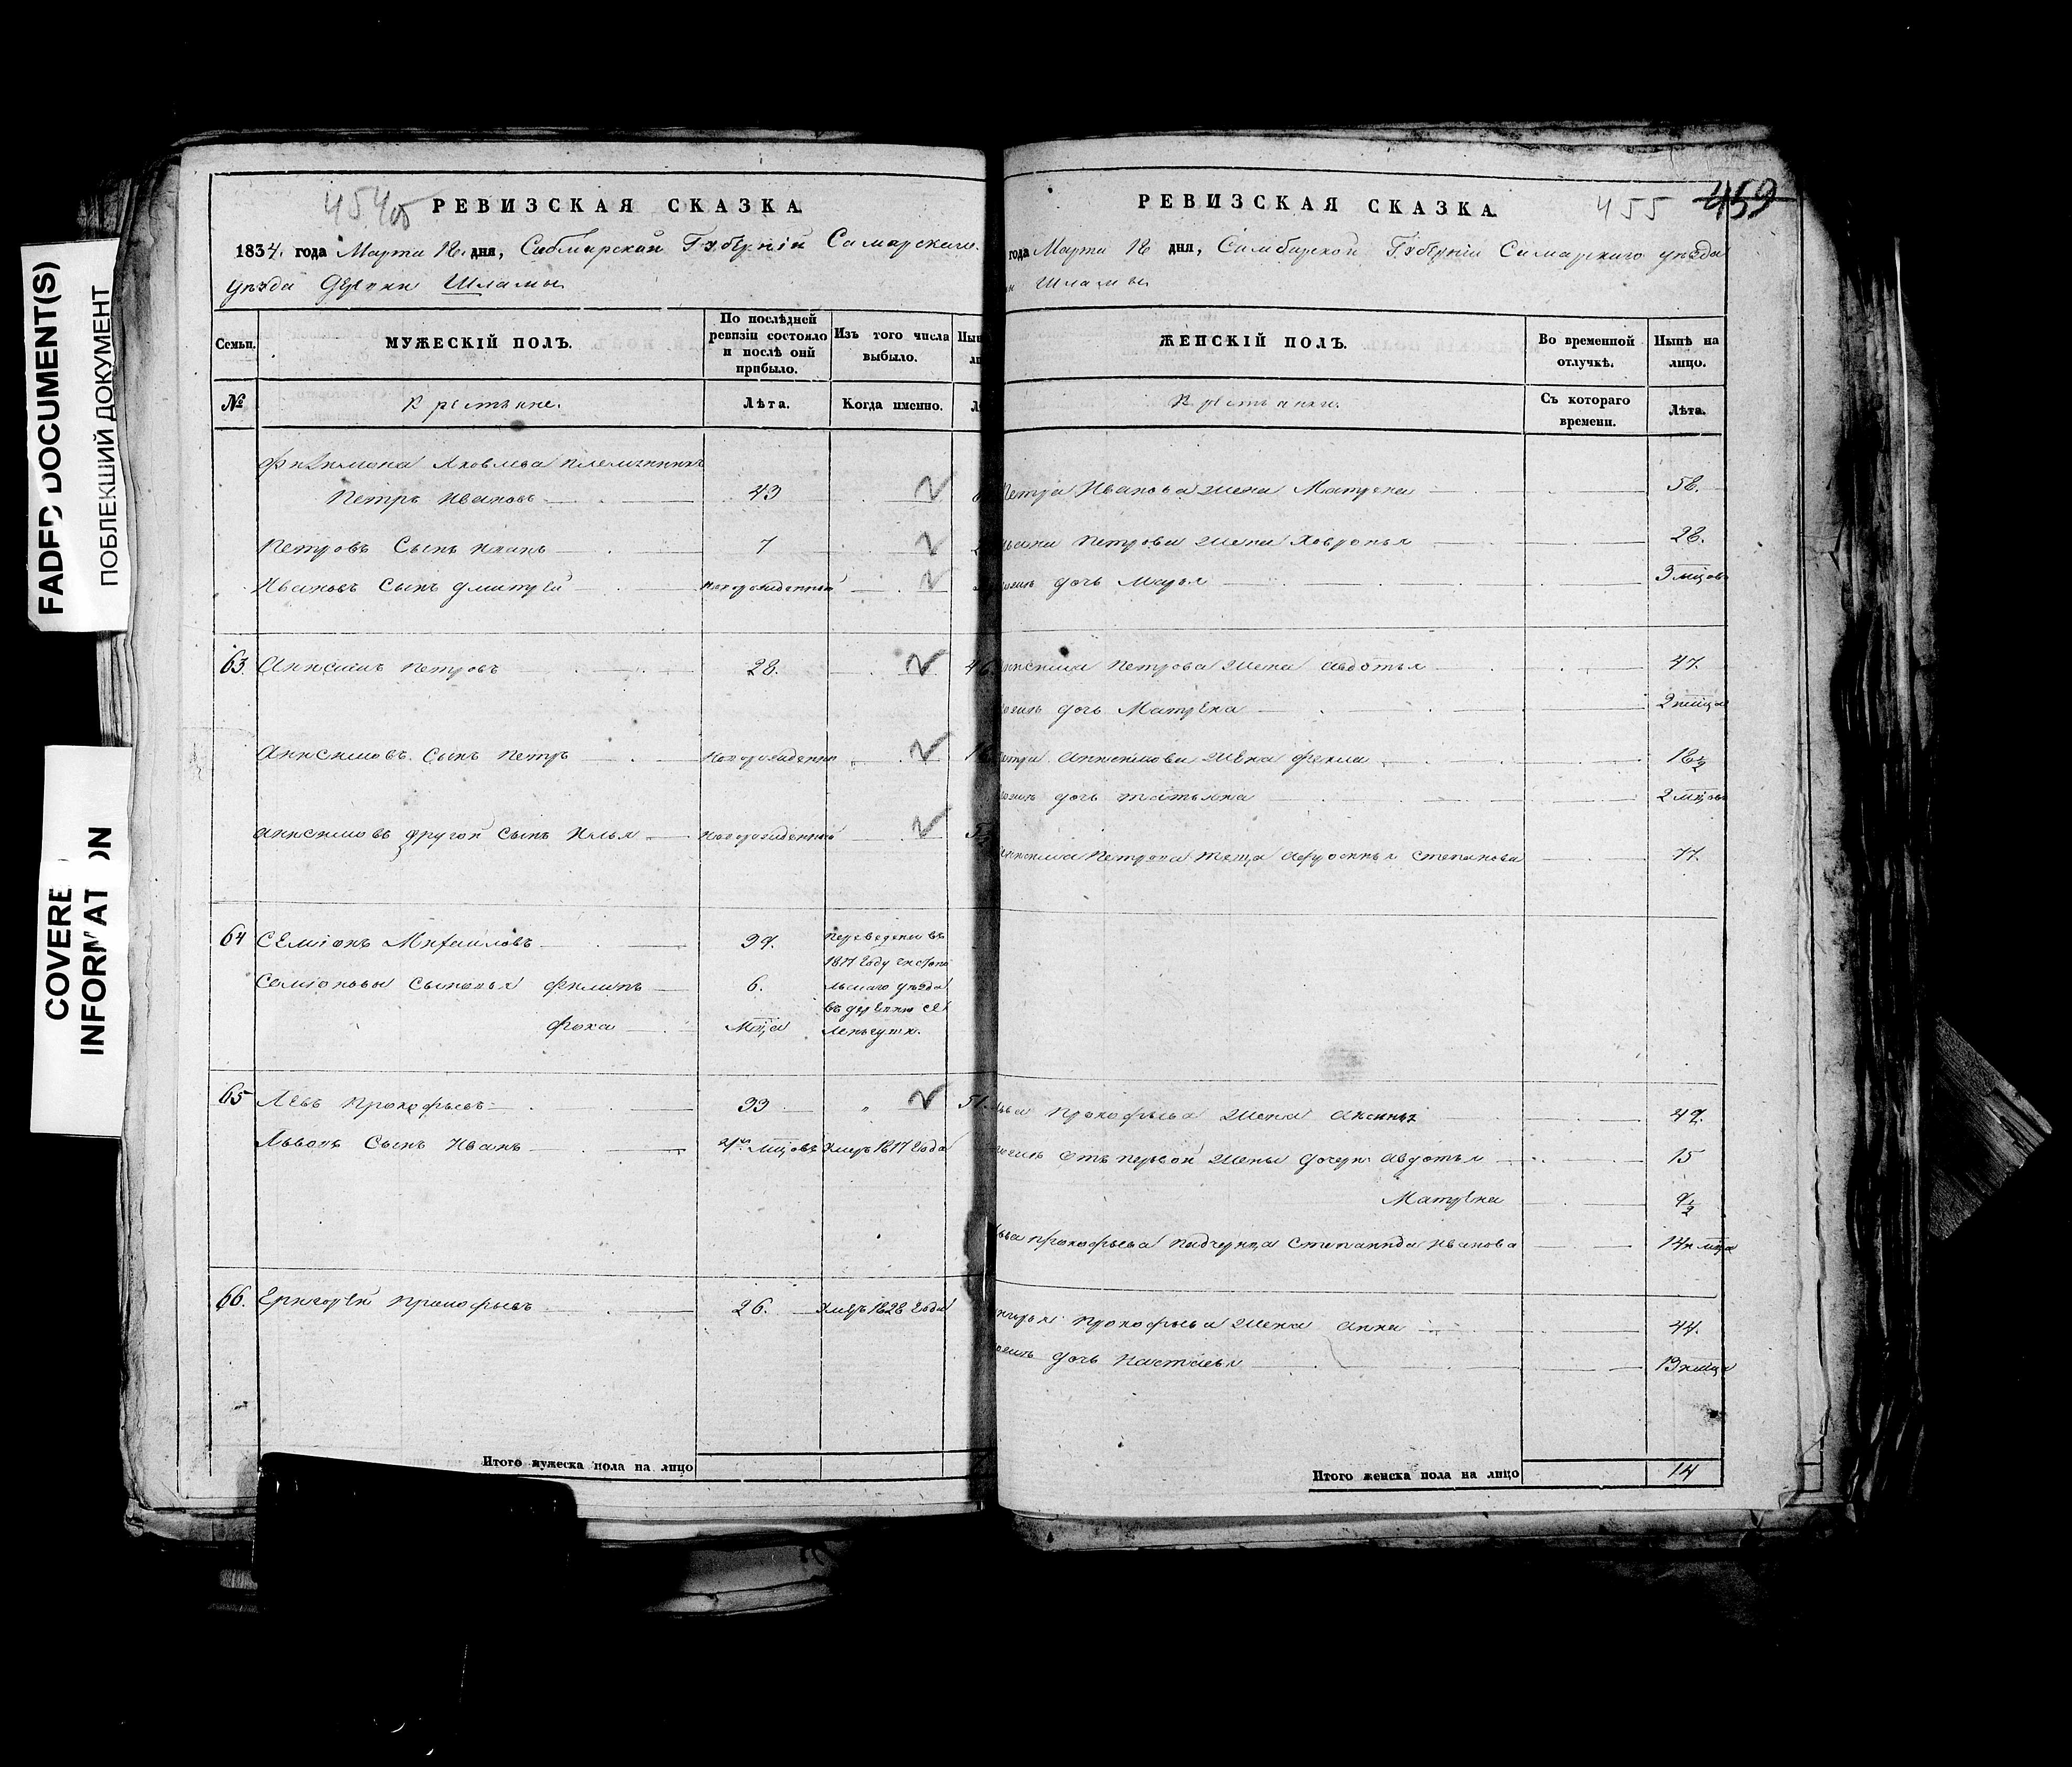 FADED DOCUMENT(S)
ПОБЛЕКШИЙ ДОКУМЕНТ
COVERE
INFORMAT ON
454об
РЕВИЗСКАЯ СКАЗКА
1834. года Марта 18. дня, Сибмирской Губернiи Самарскаго
уѣзда Деревни Шламы
Семьи.
МУЖЕСКIЙ ПОЛЪ.
По послѣдней ревизiи состояло и послѣ оной прибыло.
Изъ того числа выбыло.
№
Крестьяне.
Лѣта.
Когда именно.
Филимона Яковлева племянникъ
Петръ Ивановъ 43
Петровъ Сынъ Иванъ 7
Ивановъ Сынъ Дмитрей новорожденной
63. Анисимъ Петровъ 28. 46
Анисимовъ Сынъ Петръ новорожденной
Анисимовъ другой Сынъ Илья новорожденной
64 Семiонъ Михаиловъ 37. переведены въ
1817 Году
Семiоновы Сыновья Филипъ 6. уѣзда
въ деревню Се
Фока мѣца
65 Левъ Прокофьевъ 33 " 51
Львовъ Сынъ Иванъ мѣцовъ умеръ 1817 Года
66. Григорей Прокофьевъ 26. умеръ 1828 Года
Итого мужеска пола на лицо
РЕВИЗСКАЯ СКАЗКА
455 459
года Марта 18 дня, Симбирской Губернiи Самарскаго уѣзда
Шламы
ЖЕНСКIЙ ПОЛЪ.
Во временной отлучкѣ.
Нынѣ на лицо.
Крестьянки.
Съ котораго времени.
Лѣта.
Петра Иванова жена Матрена 58.
Ивана Петрова жена Хавронья 28.
дочь Марья 3 мѣцовъ
Анисима Петрова жена Авдотья 47.
дочь Матрена
Петра Анисимова жена Фекла 18½
дочь Татьяна 2 мѣцовъ
Анисима Петрова теща Афросинья Степанова 77.
Льва Прокофьева жена Аксинья 47.
отъ первой жены дочери Авдотья 15
Матрена 9½
Льва Прокофьева падчерица Степанида Иванова
Григорья Прокофьева жена Анна 44.
дочь Настасья
Итого женска пола на лицо 14